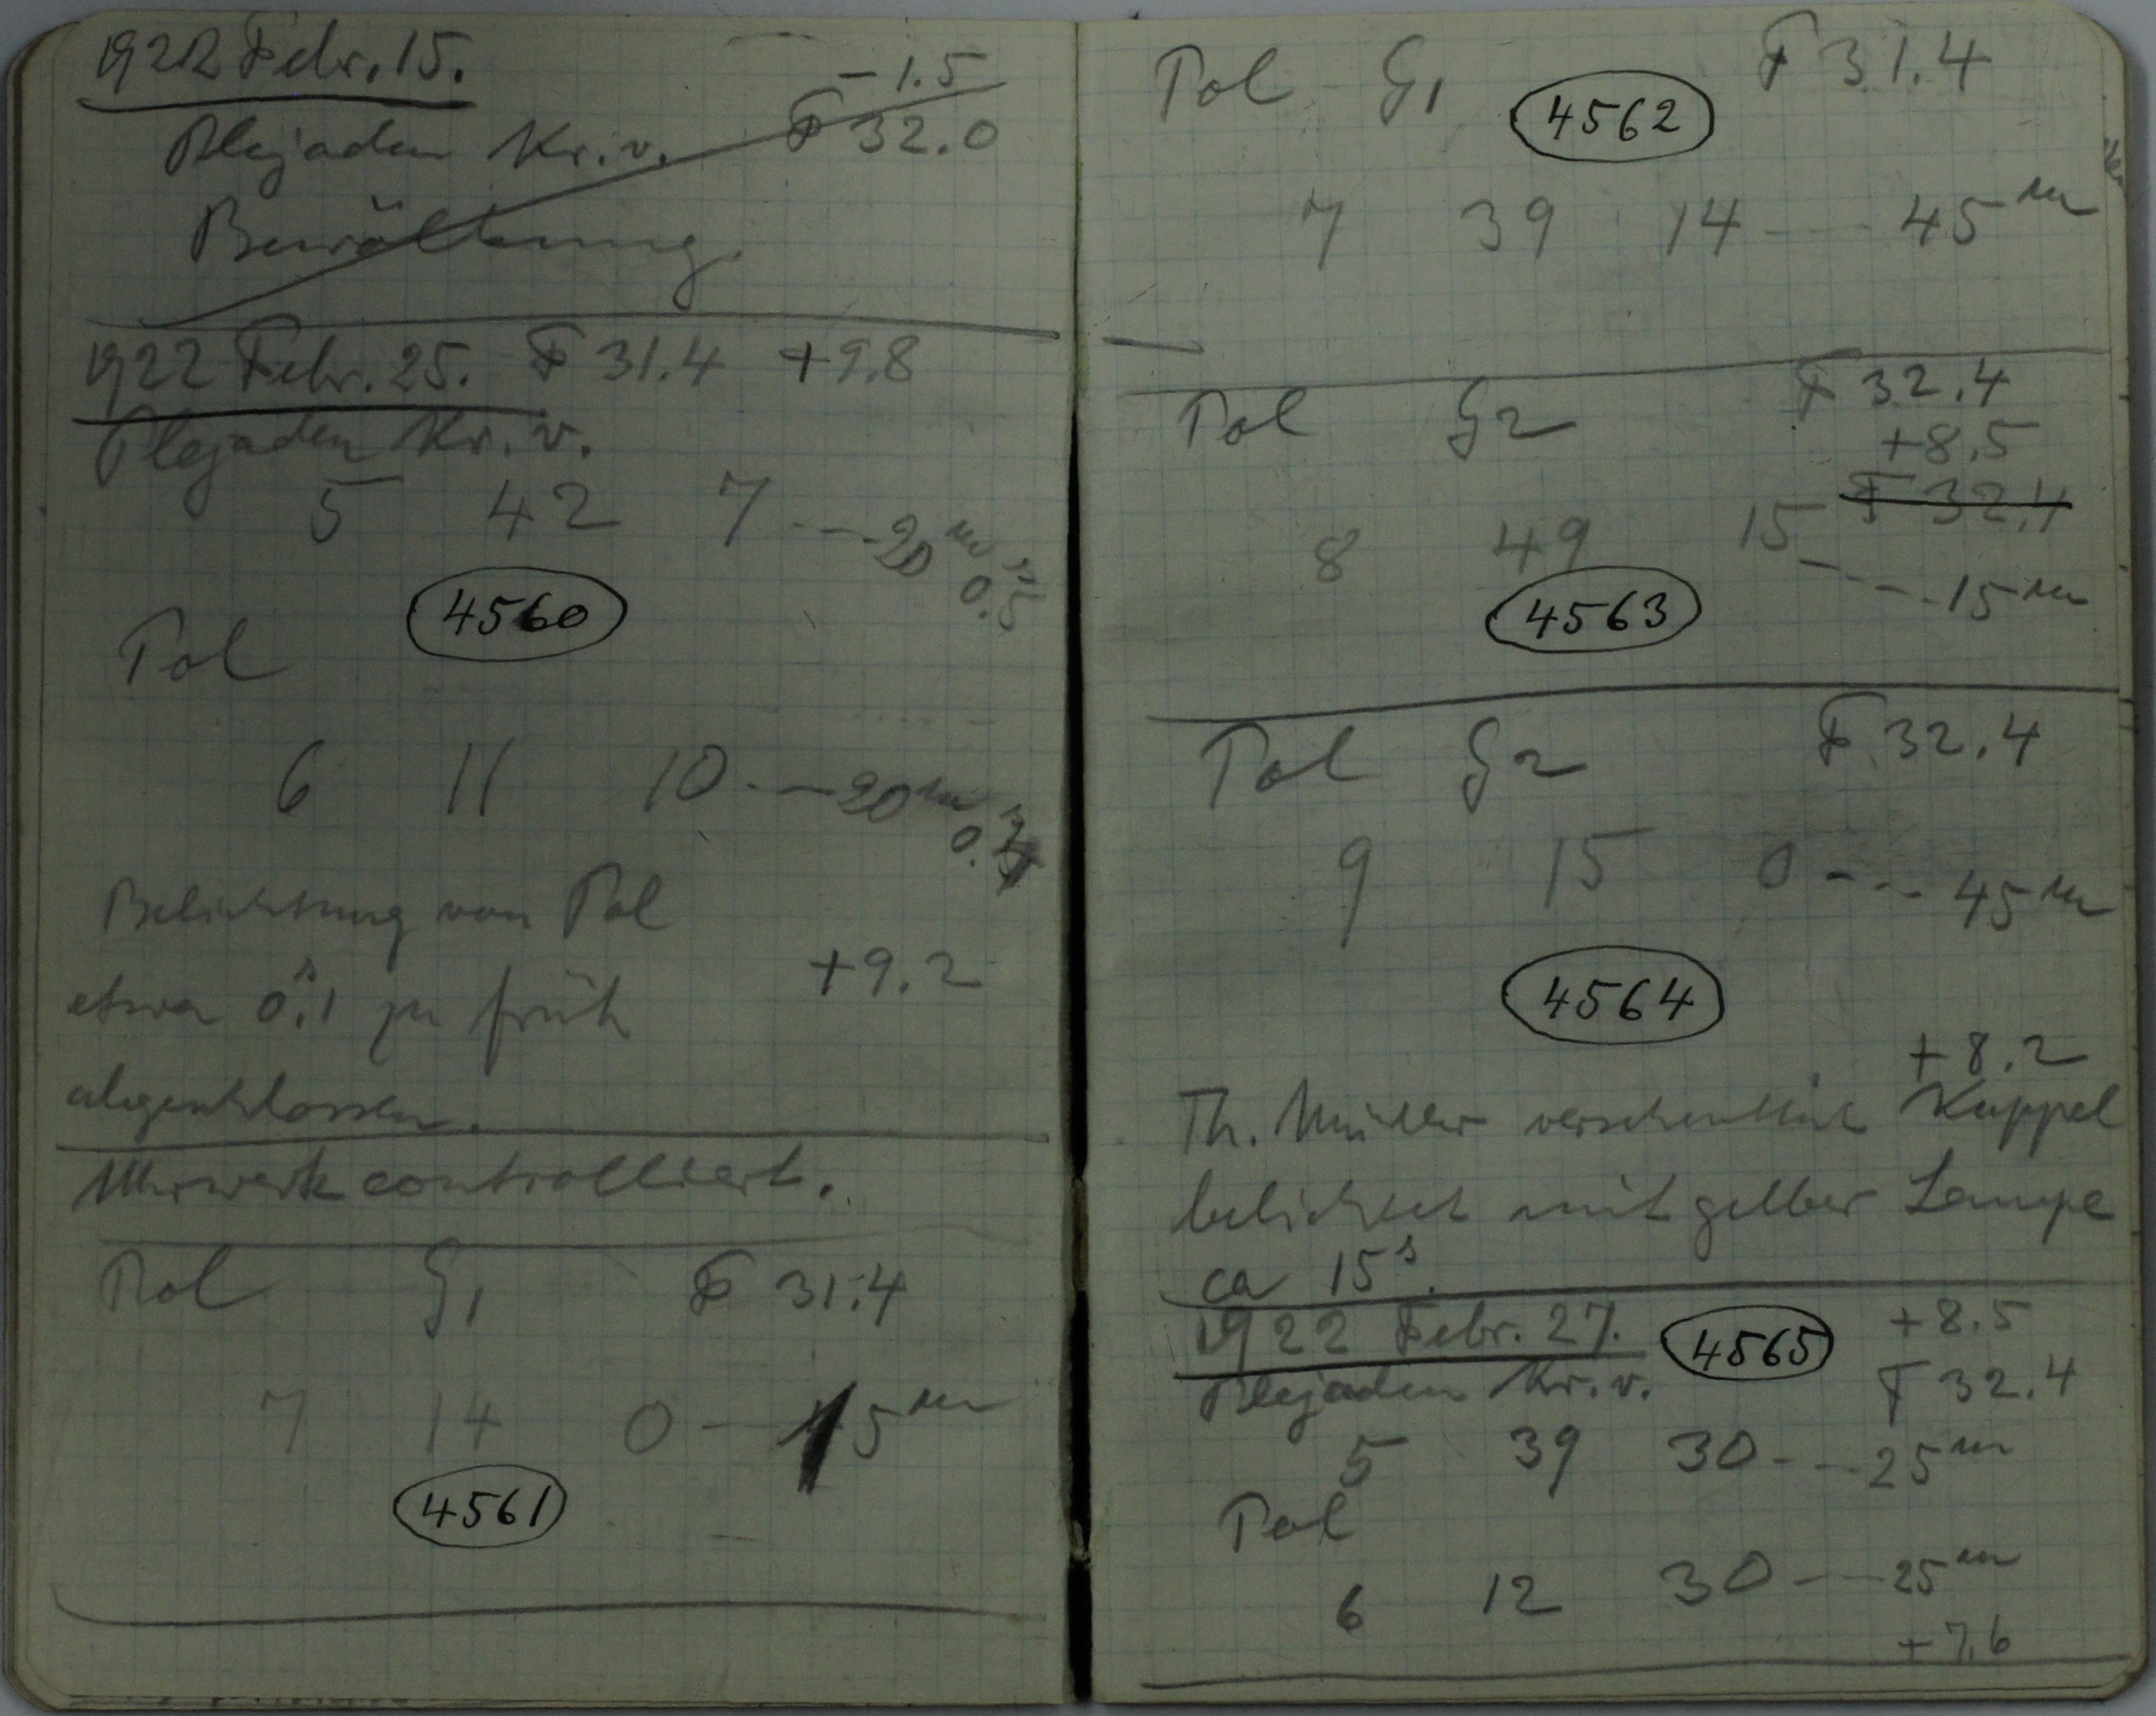 1922 Febr. 15.
-1.5
Plejaden Kr. v. F 32.0
Bewölkung.
1922 Febr. 25. F 31.4 +9.8
Plejaden Kr. v.
5 42 7 --- 20m 0.s5
4560
Pol
6 11 10 --- 20m
Belichtung von Pol
etwa 0.s1 zu früh +9.2
abgeschlossen.
Uhrwerk controlliert.
Pol G1 F 31.4
7 14 0 --- 15m
4561
Pol G1 F 31.4
4562
7 39 14 --- 45m
Pol G2 F 32.4
+8.5
F 32.4
8 49 15 --- 15m
4563
Pol G2 F 32.4
9 15 0 --- 45m
4564
+8.2
Th. Müller Kuppel
belichtet mit gelber Lampe
ca 15s.
1922 Febr. 27. 4565 +8.5
Plejaden Kr. v. F 32.4
5 39 30 --- 25m
Pol
6 12 30 --- 25m
+7.6